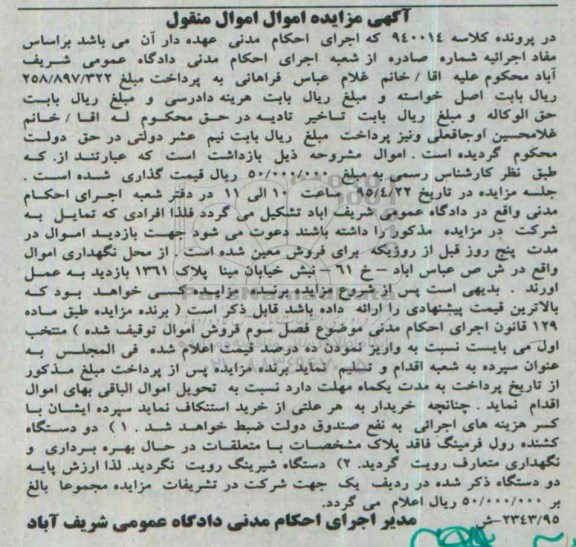 آگهی مزایده اموال اموال منقول
در پرونده کلاسه ۹۴۰۰۱۴ که اجرای احکام مدنی عهده دار آن می باشد براساس
مفاد اجرائیه شماره صادره از شعبه اجرای احکام مدنی دادگاه عمومی شریف
آباد محکوم علیه اقا / خانم غلام عباس فراهانی به پرداخت مبلغ ۲۵۸/۸۹۷/۳۲۲
ریال بابت اصل خواسته و مبلغ ریال بابت هزینه دادرسی و مبلغ ریال بابت
حق الوکاله و مبلغ ریال بابت تاخیر تادیه در حق محکوم له اقا / خانم
غلامحسین اوجاقعلی ونیز پرداخت مبلغ ریال بابت نیم عشر دولتی در حق دولت
محکوم گردیده است . اموال مشروحه ذیل بازداشت است که عبارتند از. که
طبق نظر کارشناس رسمی به مبلغ ۵۰/۰۰۰/۰۰۰ ریال قیمت گذاری شده است .
جلسه مزایده در تاریخ ۹۵/۴/۲۲ ساعت ۱۰ الی ۱۱ در دفتر شعبه اجرای احکام
مدنی واقع در دادگاه عمومی شریف اباد تشکیل می گردد فلذا افرادی که تمایل به
شرکت در مزایده مذکور را داشته باشند دعوت می شود جهت بازدید اموال در
مدت پنج روز قبل از روزیکه برای فروش معین شده است از محل نگهداری اموال
واقع در ش ص عباس اباد – خ ۶۱ – نبش خیابان مینا پلاک ۱۳۶۱ بازدید به عمل
اورند . بدیهی است پس از شروع مزایده برنده مزایده کسی خواهد بود که
بالاترین قیمت پیشنهادی را ارائه داده باشد قابل ذکر است ( برنده مزایده طبق ماده
۱۲۹ قانون اجرای احکام مدنی موضوع فصل سوم فروش اموال توقیف شده ) منتخب
اول می بایست نسبت به واریز نمودن ده درصد قیمت اعلام شده فی المجلس به
عنوان سپرده به شعبه اقدام و تسلیم نماید برنده مزایده پس از پرداخت مبلغ مذکور
از تاریخ پرداخت به مدت یکماه مهلت دارد نسبت به تحویل اموال الباقی بهای اموال
اقدام نماید . چنانچه خریدار به هر علتی از خرید استنکاف نماید سپرده ایشان با
کسر هزینه های اجرائی به نفع صندوق دولت ضبط خواهد شد . ۱ ) دو دستگاه
کشنده رول فرمینگ فاقد پلاک مشخصات با متعلقات در حال بهره برداری و
نگهداری متعارف رویت گردید. ۲) دستگاه شیرینگ رویت نگردید. لذا ارزش پایه
دو دستگاه ذکر شده در ردیف یک جهت شرکت در تشریفات مزایده مجموعا بالغ
بر ۵۰/۰۰۰/۰۰۰ ریال اعلام می گردد.
۲۳۴۳/۹۵–ش مدیر اجرای احکام مدنی دادگاه عمومی شریف آباد